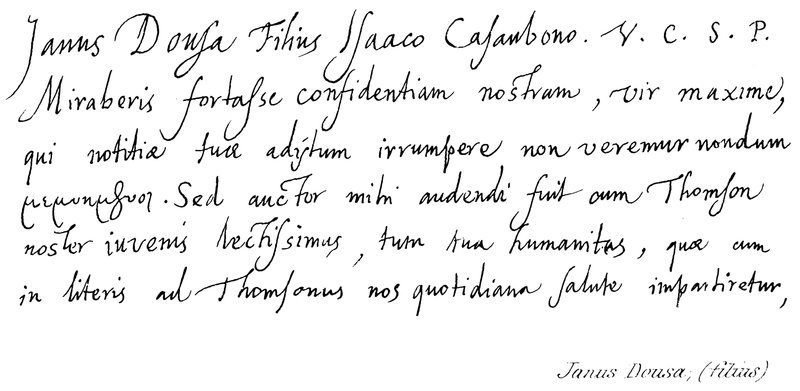 Janus Dousa Filius Isaaco Casaubono. V. C. S. P.
Miraberis fortasse confidentiam nostram, vir maxime,
qui notitiæ tuæ adÿtum irrumpere non veremur nondum
μεμυημένοι. Sed auctor mihi audendi fuit cum Thomson
noster iuvenis lectissimus, tum tua humanitas, quæ cum
in literis ad Thomsonus nos quotidiana salute impartiretur,
Janus Dousa, (filius)